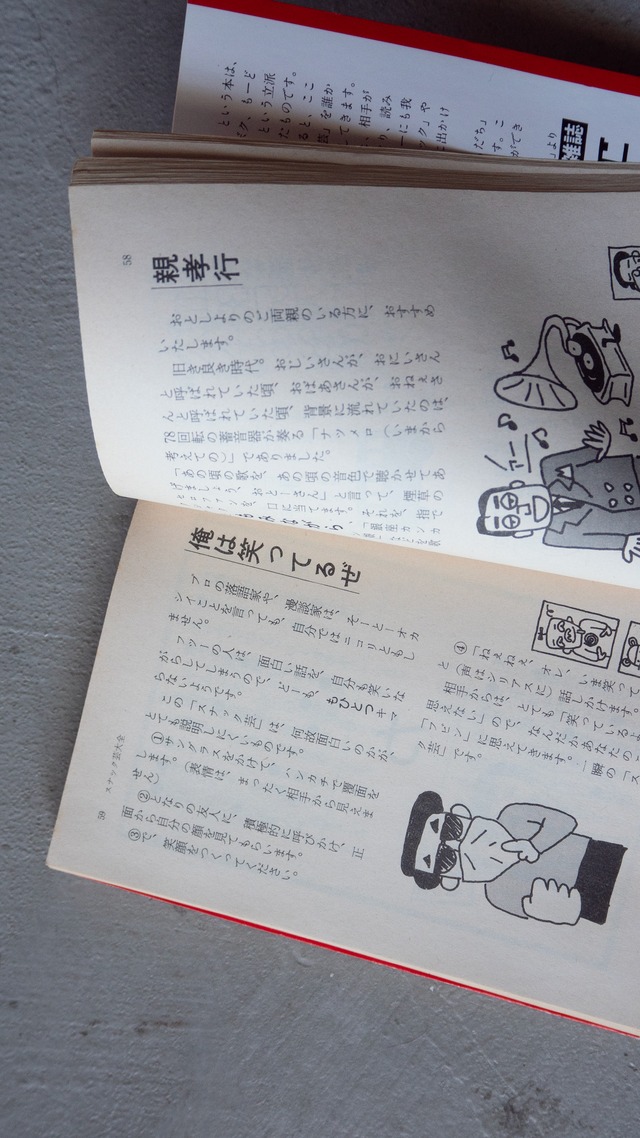 という本は、
という立派
たものです。
ると、ここ
を誰か
てきます。
相手が
読み
にも我
や
に出かけ
だち」
す。こ
ができ
より
雑誌
58
親孝行
おとしよりのご両親のいる方に、おすすめ
いたします。
旧き良き時代。おじいさんが、おにいさん
と呼ばれていた頃、おばあさんが、おねえさ
んと呼ばれていた頃、背景に流れていたのは、
78回転の蓄音器が奏る「ナツメロ（いまから
考えての）」でありました。
「あの頃の歌を、あの頃の音色で聴かせてあ
げましょう、おとーさん」と言って、煙草の
口に当てます。それを、指で
俺は笑ってるぜ
プロの落語家や、漫談家は、そーとーオカ
シイことを言っても、自分ではニコリともし
ません。
フツーの人は、面白い話を、自分も笑いな
がらしてしまうので、どーも、もひとつキマ
らないようです。
この「スナック芸」は、何故面白いのかが、
とても説明しにくいものです。
①サングラスをかけて、ハンカチで覆面を
します。（表情は、まったく相手から見えま
せん）
②となりの友人に、積極的に呼びかけ、正
面から自分の顔を見てもらいます。
③で、笑顔をつくってください。
④「ねぇねぇ、オレ、いま笑っ
と（声はシリアスに）話しかけます。
相手からは、とても「笑っている
思えない」ので、なんだかあなたの
「フビン」に思えてきます。一瞬の「ス
ク芸」です。
スナック芸大全
59